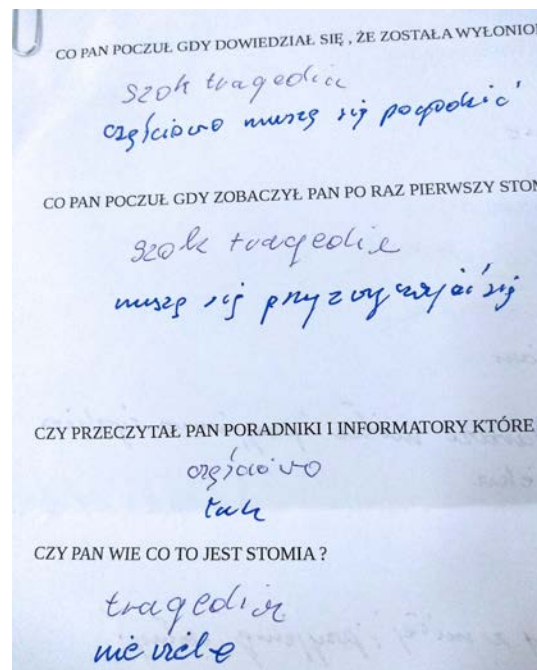 CO PAN POCZUŁ GDY DOWIEDZIAŁ SIĘ , ŻE ZOSTAŁA WYŁONIO
szok tragedia
częściowo muszę się pogodzić
CO PAN POCZUŁ GDY ZOBACZYŁ PAN PO RAZ PIERWSZY STOM
szok tragedia
muszę się przyzwyczajać się
CZY PRZECZYTAŁ PAN PORADNIKI I INFORMATORY KTÓRE
częściowo
tak
CZY PAN WIE CO TO JEST STOMIA ?
tragedia
nie wiele